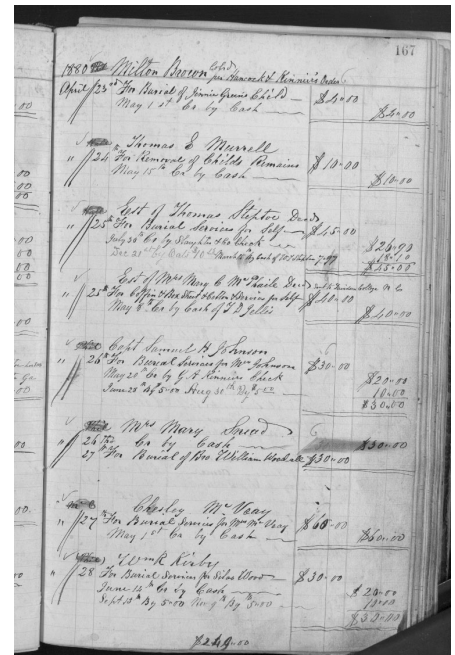 167
1880 Milton Brown Cold
per Hancock & Kinnier's Order
April 23rd For Burial of Jinnie Greens Child — $4.00
May 1st Cr by Cash — $4.00
Thomas E Murrell
" 24 For Removal of Childs Remains $10.00
May 15th Cr by Cash — $10.00
Est of Thomas Steptoe Decd
" 25th For Burial Services for Self — $45.00
July 30th Cr by Slaughter & Co Check — $26.90
Dec 21st by 18.10
$45.00
Est of Mrs Mary C McPhaile Decd
" 25th For Coffin & Box & Services for Self $40.00
May 8th Cr by Cash of $40.00
Capt Samuel H Johnson
" 26th For Burial Services for Mrs Johnson $30.00
May 20th Cr by G. A Kinniers Check $20.00
June 28th By 5.00 Aug 31st By $5.00 10.00
$30.00
Mrs Mary Snead
" 26 Cr by Cash — $30.00
27th For Burial of Bro William $30.00
Chesley McVeay
" 27th For Burial Services for Mrs McVeay $60.00
May 1st Cr by Cash — $60.00
Kirby
" 28 For Burial Services for Silas Wood — $30.00
June 15th Cr by Cash — $20.00
Sept 13th By 5.00 Nov 9th By 5.00 — 10.00
$30.00
$249.00